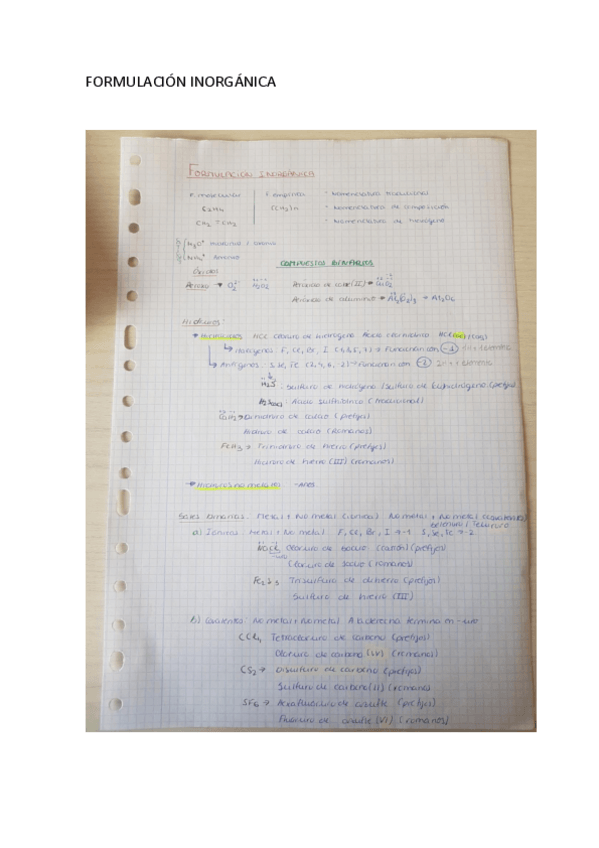 FORMULACIÓN INORGÁNICA
FORMULACIÓN INORGÁNICA
F. molecular F. empírica · Nomenclatura tradicional
C2H4 (CH2)n · Nomenclatura de composición
CH2 = CH2 · Nomenclatura de hidrógeno
H3O+
NH4+ Amonio
COMPUESTOS BINARIOS
Óxidos
Peróxido → H2O2 Peróxido de → 
Peróxido de aluminio → Al2(O2)3 → Al2O6
Hidruros:
HCl cloruro de hidrógeno Ácido clorhídrico
Halógenos: F, Cl, Br, I → Funcionan con -1
Anfígenos: S, Se, Te → Funcionan con -2
H2S: Sulfuro de hidrógeno / Sulfuro de dihidrógeno (prefijos)
Ácido sulfhídrico (tradicional)
CaH2 → Dihidruro de calcio (prefijos)
Hidruro de calcio (romanos)
FeH3 → Trihidruro de hierro (prefijos)
Hidruro de hierro (III) (romanos)
Sales binarias: Metal + No metal (iónica) No metal + No metal
a) Iónicas: Metal + No metal F, Cl, Br, I → -1 S, Se, Te → -2
NaCl Cloruro de sodio (prefijos)
Cloruro de sodio (romanos)
Fe2S3 Trisulfuro de dihierro (prefijos)
Sulfuro de hierro (III)
b) Covalentes: No metal + No metal A la derecha termina en -uro
CCl4 Tetracloruro de carbono (prefijos)
Cloruro de carbono (IV) (romanos)
CS2 → Disulfuro de carbono (prefijos)
Sulfuro de carbono (romanos)
SF6 → Hexafluoruro de azufre (prefijos)
Fluoruro de azufre (VI) (romanos)